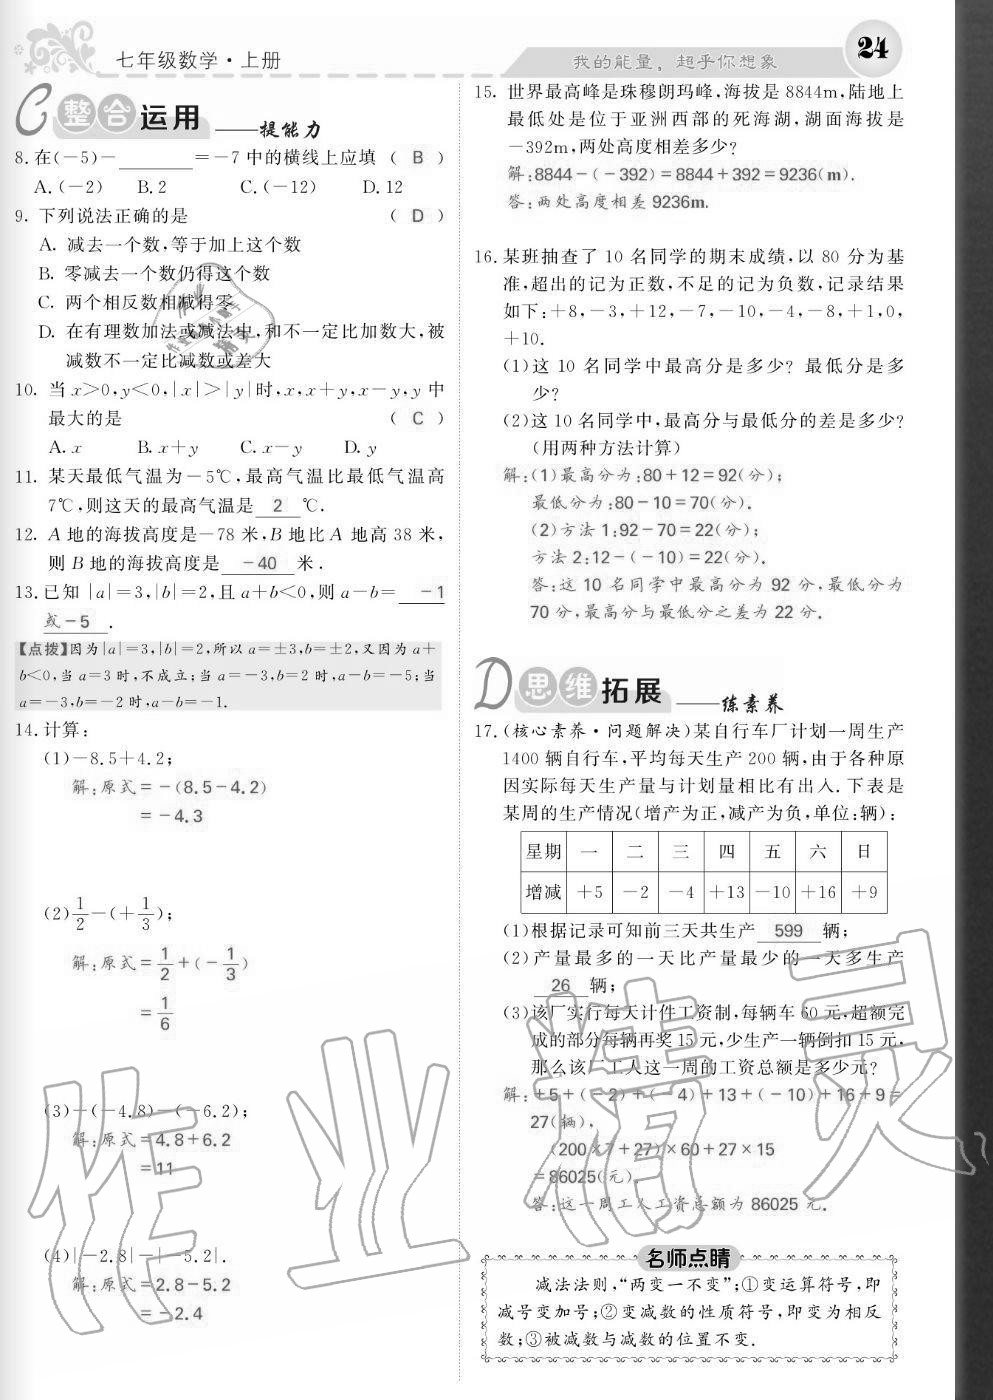 七年级数学·上册
我的能量，超乎你想象
24
C 整合运用 ——提能力
8.在(－5)－ ＝－7 中的横线上应填 ( B )
A.(－2) B.2 C.(－12) D.12
9. 下列说法正确的是 ( D )
A. 减去一个数,等于加上这个数
B. 零减去一个数仍得这个数
C. 两个相反数相减得零
D. 在有理数加法或减法中,和不一定比加数大,被
减数不一定比减数或差大
10. 当 x＞0,y＜0,|x|＞|y|时,x,x＋y,x－y,y 中
最大的是 ( C )
A.x B.x＋y C.x－y D.y
11. 某天最低气温为－5℃,最高气温比最低气温高
7℃,则这天的最高气温是 2 ℃.
12. A 地的海拔高度是－78 米,B 地比 A 地高 38 米,
则 B 地的海拔高度是 －40 米.
13.已知 |a|＝3,|b|＝2,且 a＋b＜0,则 a－b＝ －1
或－5 .
【点拨】因为|a|＝3,|b|＝2,所以 a＝±3,b＝±2,又因为 a＋
b＜0,当 a＝3 时,不成立;当 a＝－3,b＝2 时,a－b＝－5;当
a＝－3,b＝－2 时,a－b＝－1.
14.计算:
(1)－8.5＋4.2;
解:原式＝－(8.5－4.2)
＝－4.3
(2)1/2－(＋1/3);
解:原式＝1/2＋(－1/3)
＝1/6
(3)－(－4.8)－(－6.2);
解:原式＝4.8＋6.2
＝11
(4)|－2.8|－|－5.2|.
解:原式＝2.8－5.2
＝－2.4
15. 世界最高峰是珠穆朗玛峰,海拔是 8844m,陆地上
最低处是位于亚洲西部的死海湖,湖面海拔是
－392m,两处高度相差多少?
解:8844－(－392)＝8844＋392＝9236(m).
答:两处高度相差 9236m.
16.某班抽查了 10 名同学的期末成绩,以 80 分为基
准,超出的记为正数,不足的记为负数,记录结果
如下:＋8,－3,＋12,－7,－10,－4,－8,＋1,0,
＋10.
(1)这 10 名同学中最高分是多少? 最低分是多
少?
(2)这 10 名同学中,最高分与最低分的差是多少?
(用两种方法计算)
解:(1)最高分为:80＋12＝92(分);
最低分为:80－10＝70(分).
(2)方法 1:92－70＝22(分);
方法 2:12－(－10)＝22(分).
答:这 10 名同学中最高分为 92 分,最低分为
70 分,最高分与最低分之差为 22 分.
D 思维拓展 ——练素养
17.(核心素养·问题解决)某自行车厂计划一周生产
1400 辆自行车,平均每天生产 200 辆,由于各种原
因实际每天生产量与计划量相比有出入.下表是
某周的生产情况(增产为正,减产为负,单位:辆):
星期 一 二 三 四 五 六 日
增减 ＋5 －2 －4 ＋13 －10 ＋16 ＋9
(1)根据记录可知前三天共生产 599 辆;
(2)产量最多的一天比产量最少的一天多生产
26 辆;
(3)该厂实行每天计件工资制,每辆车 60 元,超额完
成的部分每辆再奖 15 元,少生产一辆倒扣 15 元,
那么该厂工人这一周的工资总额是多少元?
解:＋5＋(－2)＋(－4)＋13＋(－10)＋16＋9＝
27(辆),
(200×7＋27)×60＋27×15
＝86025(元).
答:这一周工人工资总额为 86025 元.
名师点睛
减法法则,“两变一不变”;①变运算符号,即
减号变加号;②变减数的性质符号,即变为相反
数;③被减数与减数的位置不变.
作业精灵